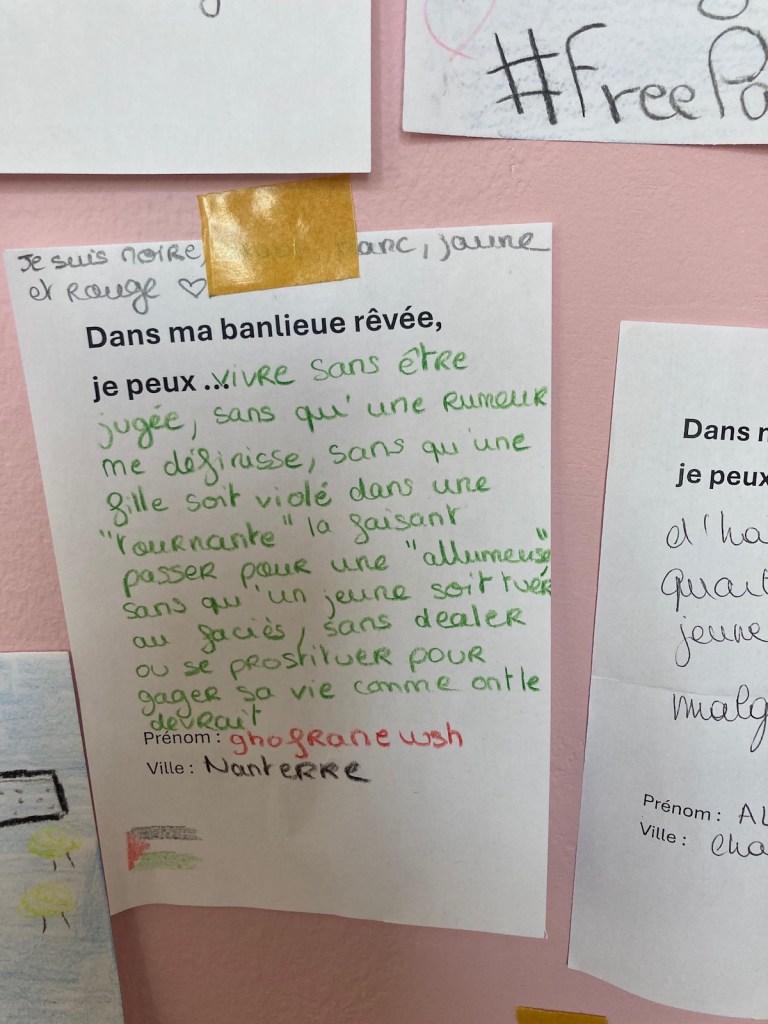 #FreePa
Je suis noire, blanc, jaune
et Rouge ♡
Dans ma banlieue rêvée,
je peux ... vivre sans être
jugée, sans qu'une rumeur
me définisse, sans qu'une
fille soit violé dans une
"tournante" la faisant
passer pour une "allumeuse"
sans qu'un jeune soit tuér
au faciès, sans dealer
ou se prostituer pour
gager sa vie comme ont le
devrait
Prénom : ghofrane wsh
Ville : Nanterre
Dans m
je peux
d'ha
quart
jeune
malg
Prénom : AL
Ville : Cha